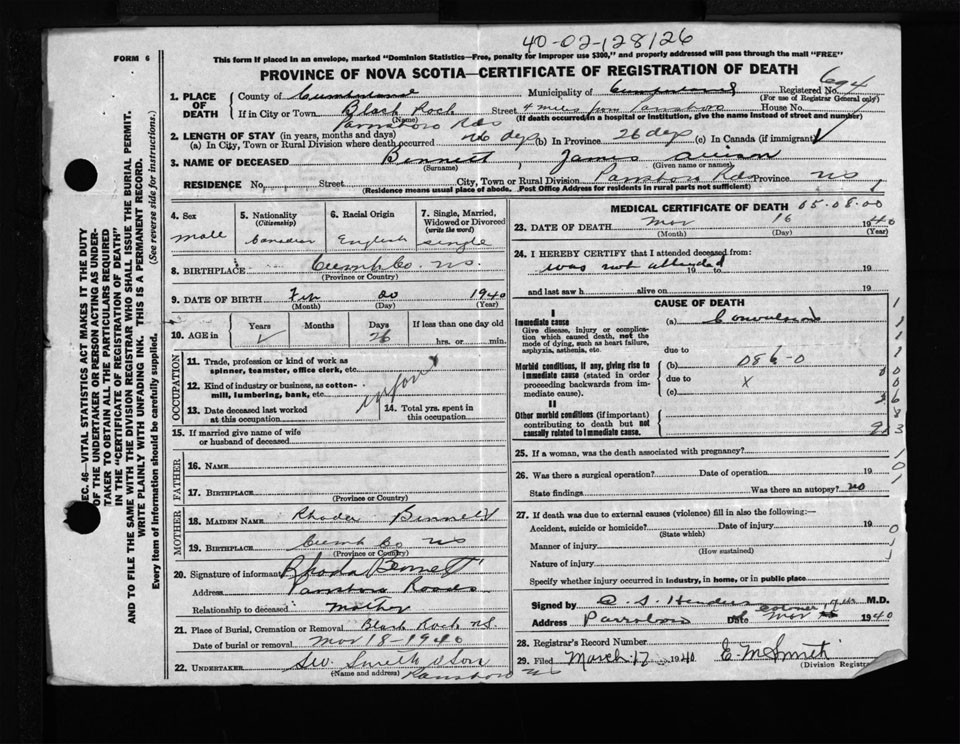 40-02-128/26
FORM 6
This form if placed in an envelope, marked "Dominion Statistics—Free, penalty for improper use $300," and properly addressed will pass through the mail "FREE"
PROVINCE OF NOVA SCOTIA—CERTIFICATE OF REGISTRATION OF DEATH
694
1. PLACE OF DEATH
County of Cumberland Municipality of Cumberland Registered No.
(For use of Registrar General only)
If in City or Town Black Rock Street 4 miles from Parrsboro House No.
(Name) (If death occurred in a hospital or institution, give the name instead of street and number)
Parrsboro Rds
2. LENGTH OF STAY (in years, months and days)
(a) In City, Town or Rural Division where death occurred 26 dys (b) In Province 26 dys (c) In Canada (if immigrant)
3. NAME OF DECEASED Bennett, James
(Surname) (Given name or names)
RESIDENCE No. Street City, Town or Rural Division Parrsboro Rds Province NS
(Residence means usual place of abode. Post Office Address for residents in rural parts not sufficient)
4. Sex
male
5. Nationality
(Citizenship)
Canadian
6. Racial Origin
English
7. Single, Married, Widowed or Divorced
(write the word)
Single
8. BIRTHPLACE Cumb Co. NS.
(Province or Country)
9. DATE OF BIRTH Feb 20 1940
(Month) (Day) (Year)
10. AGE in
Years Months Days If less than one day old
26 hrs. or min.
OCCUPATION
11. Trade, profession or kind of work as spinner, teamster, office clerk, etc.
12. Kind of industry or business, as cotton-mill, lumbering, bank, etc.
infant
13. Date deceased last worked at this occupation
14. Total yrs. spent in this occupation
15. If married give name of wife or husband of deceased
FATHER
16. NAME
17. BIRTHPLACE
(Province or Country)
MOTHER
18. MAIDEN NAME Rhoda Bennett
19. BIRTHPLACE Cumb Co NS
(Province or Country)
20. Signature of informant Rhoda Bennett
Address Parrsboro Roads
Relationship to deceased mother
21. Place of Burial, Cremation or Removal Black Rock NS.
Date of burial or removal Mar 18-1940
22. UNDERTAKER SW. Smith & Son
(Name and address) Parrsboro NS
MEDICAL CERTIFICATE OF DEATH 05.08.00
23. DATE OF DEATH Mar 16 1940
(Month) (Day) (Year)
24. I HEREBY CERTIFY that I attended deceased from:
was not attended 19 to 19
and last saw h alive on 19
CAUSE OF DEATH
I
Immediate cause
Give disease, injury or complication which caused death, not the mode of dying, such as heart failure, asphyxia, asthenia, etc.
(a) Convulsions
due to
Morbid conditions, if any, giving rise to immediate cause (stated in order proceeding backwards from immediate cause).
(b) 086-0
due to x
(c)
II
Other morbid conditions (if important) contributing to death but not causally related to immediate cause.
25. If a woman, was the death associated with pregnancy?
26. Was there a surgical operation? Date of operation 19
State findings Was there an autopsy? no
27. If death was due to external causes (violence) fill in also the following:—
Accident, suicide or homicide? Date of injury 19
(State which)
Manner of injury
(How sustained)
Nature of injury
Specify whether injury occurred in industry, in home, or in public place
Signed by M.D.
Address Parrsboro Date Mar 1940
28. Registrar's Record Number
29. Filed March 17 1940 E. M Smith
(Division Registrar)
SEC. 46—VITAL STATISTICS ACT MAKES IT THE DUTY OF THE UNDERTAKER OR PERSON ACTING AS UNDERTAKER TO OBTAIN ALL THE PARTICULARS REQUIRED IN THE "CERTIFICATE OF REGISTRATION OF DEATH"
AND TO FILE THE SAME WITH THE DIVISION REGISTRAR WHO SHALL ISSUE THE BURIAL PERMIT.
WRITE PLAINLY WITH UNFADING INK. THIS IS A PERMANENT RECORD.
Every item of information should be carefully supplied. (See reverse side for instructions.)